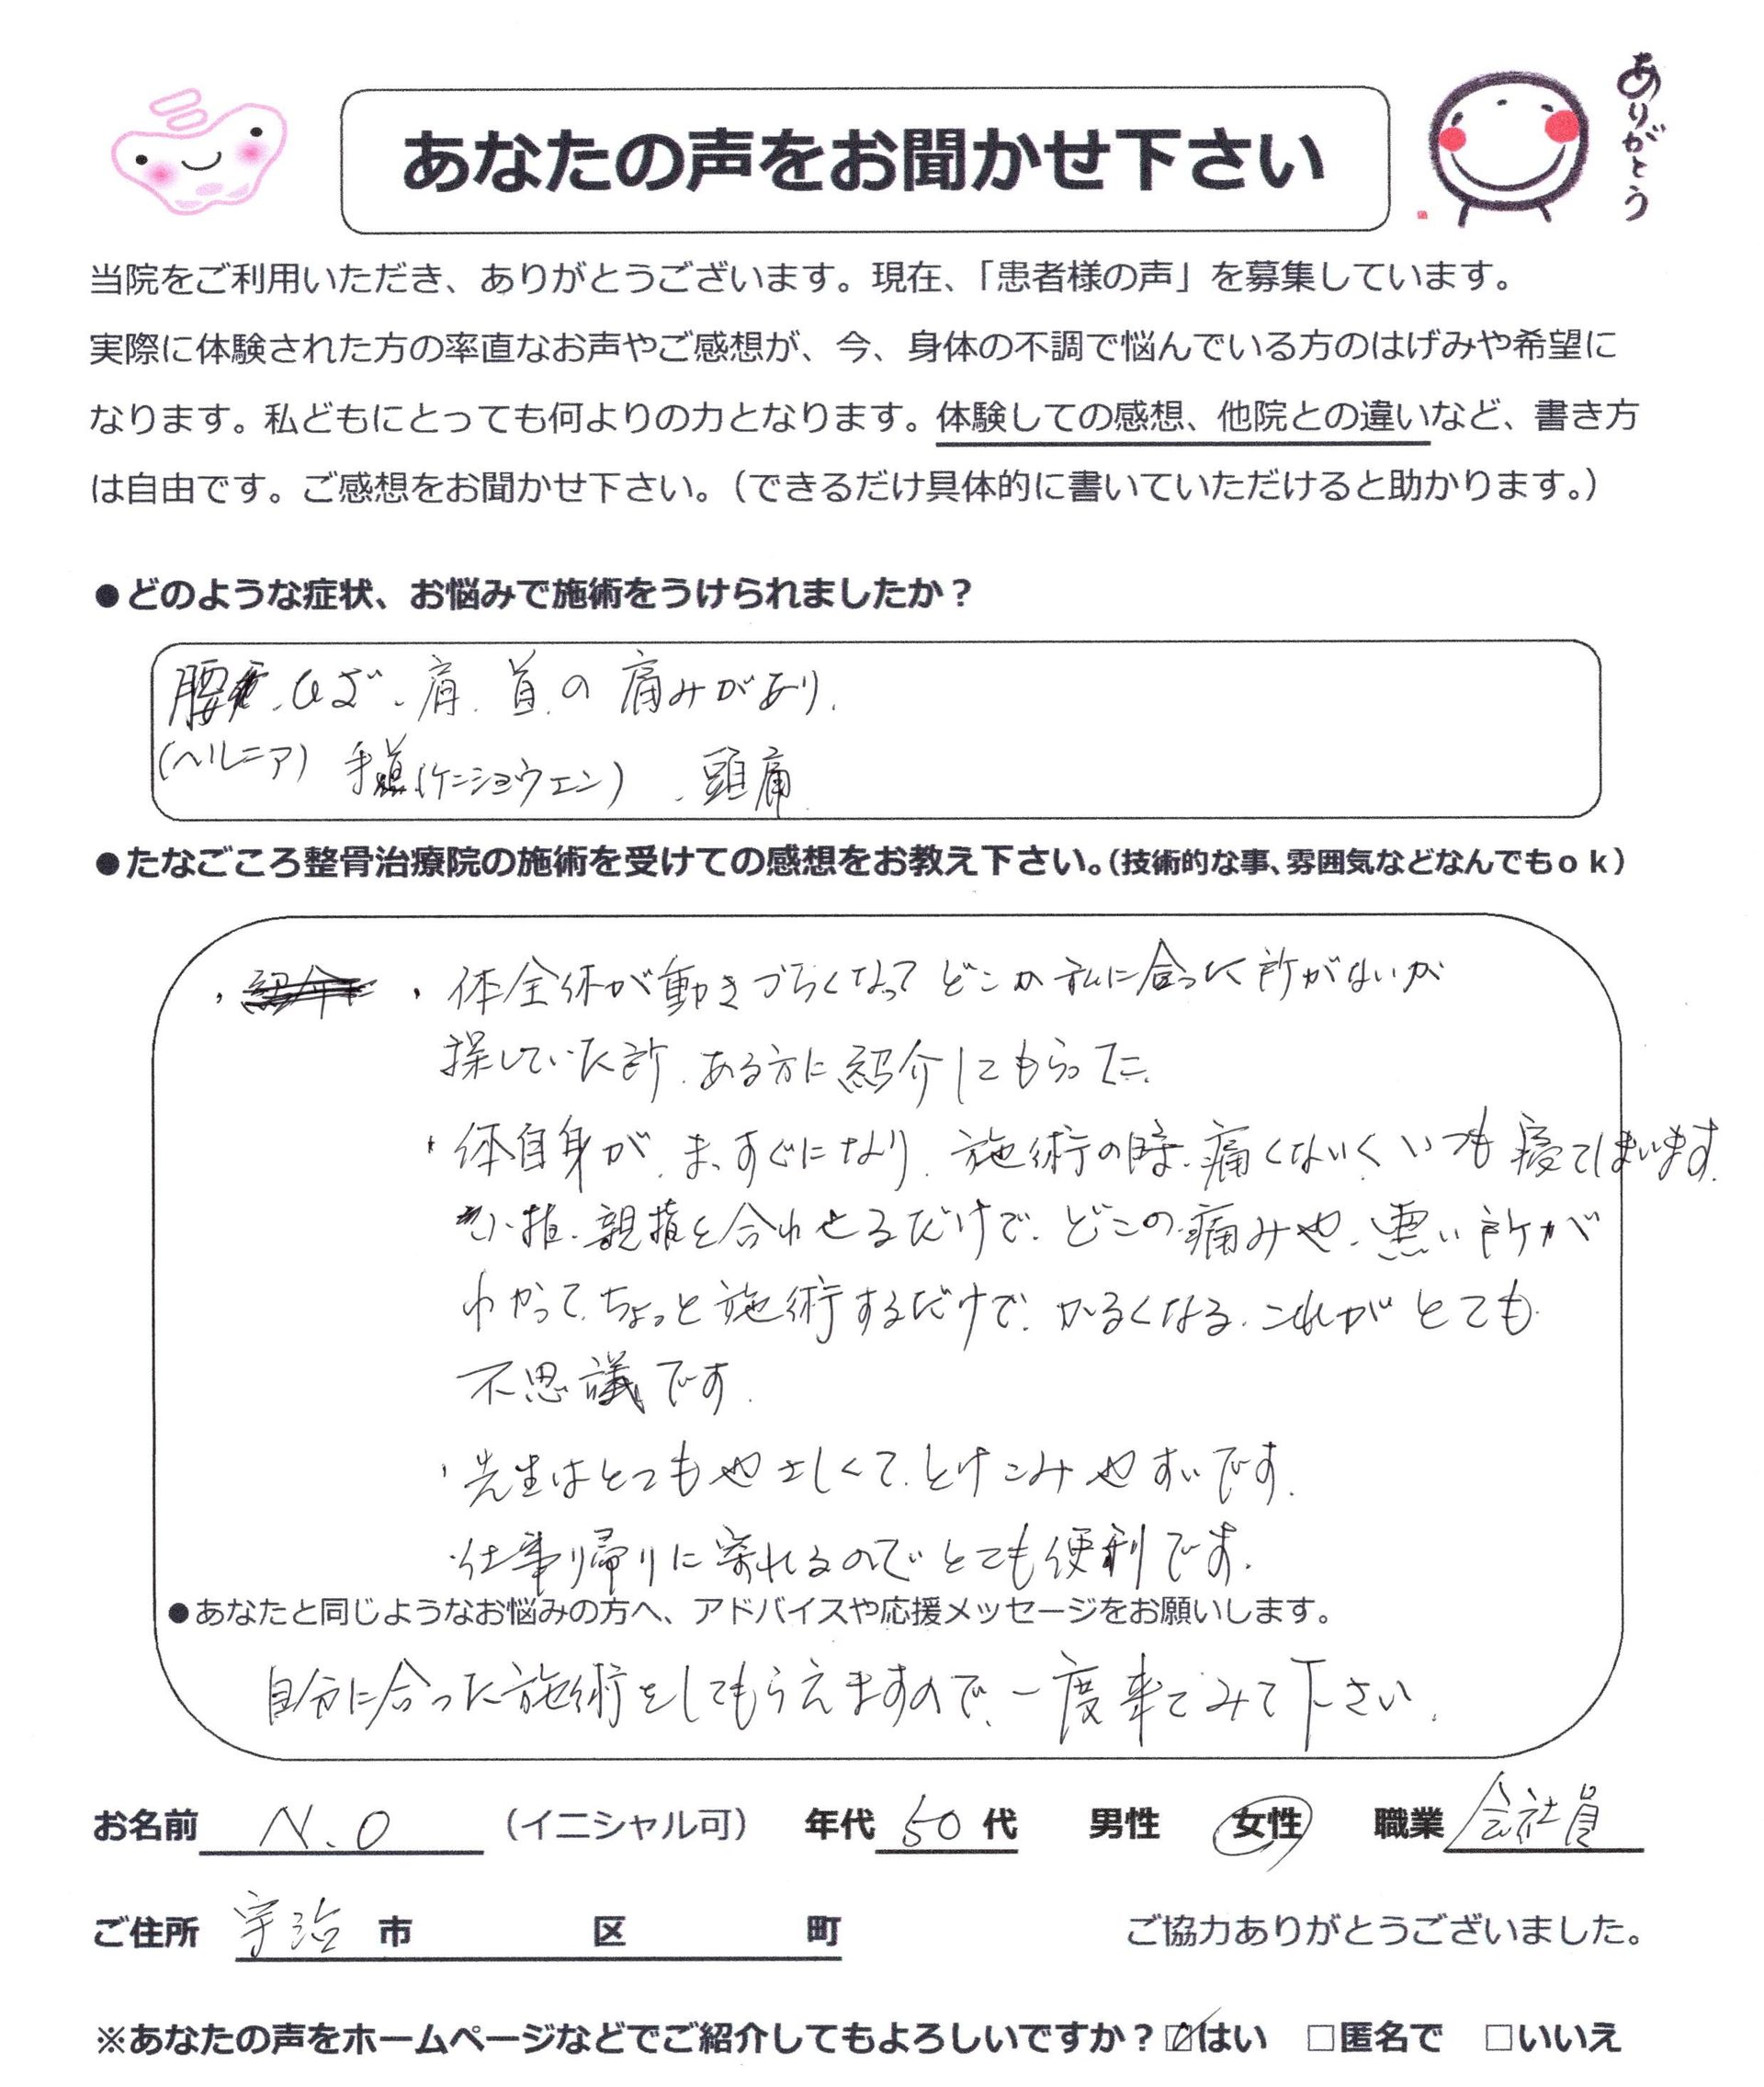 あなたの声をお聞かせ下さい
ありがとう
当院をご利用いただき、ありがとうございます。現在、「患者様の声」を募集しています。
実際に体験された方の率直なお声やご感想が、今、身体の不調で悩んでいる方のはげみや希望に
なります。私どもにとっても何よりの力となります。体験しての感想、他院との違いなど、書き方
は自由です。ご感想をお聞かせ下さい。（できるだけ具体的に書いていただけると助かります。）
●どのような症状、お悩みで施術をうけられましたか？
腰、ひざ、肩、首の痛みがあり、
（ヘルニア） 手首（ケンショウエン）、頭痛
●たなごころ整骨治療院の施術を受けての感想をお教え下さい。（技術的な事、雰囲気などなんでもｏｋ）
・体全体が動きづらくなって どこか私に合った所がないか
探していた所、ある方に紹介してもらった。
・体自身が、まっすぐになり、施術の時、痛くないく いつも寝てしまいます。
小指、親指を合わせるだけで、どこの痛みや、悪い所が
わかって、ちょっと施術するだけで、かるくなる、これがとても
不思議です。
・先生はとてもやさしくて、とけこみやすいです。
・仕事り帰りに寄れるのでとても便利です。
●あなたと同じようなお悩みの方へ、アドバイスや応援メッセージをお願いします。
自分に合った施術をしてもらえますので、一度来てみて下さい。
お名前 N.O （イニシャル可） 年代 50 代 男性 女性 職業 会社員
ご住所 宇治 市 区 町 ご協力ありがとうございました。
※あなたの声をホームページなどでご紹介してもよろしいですか？☑はい □匿名で □いいえ